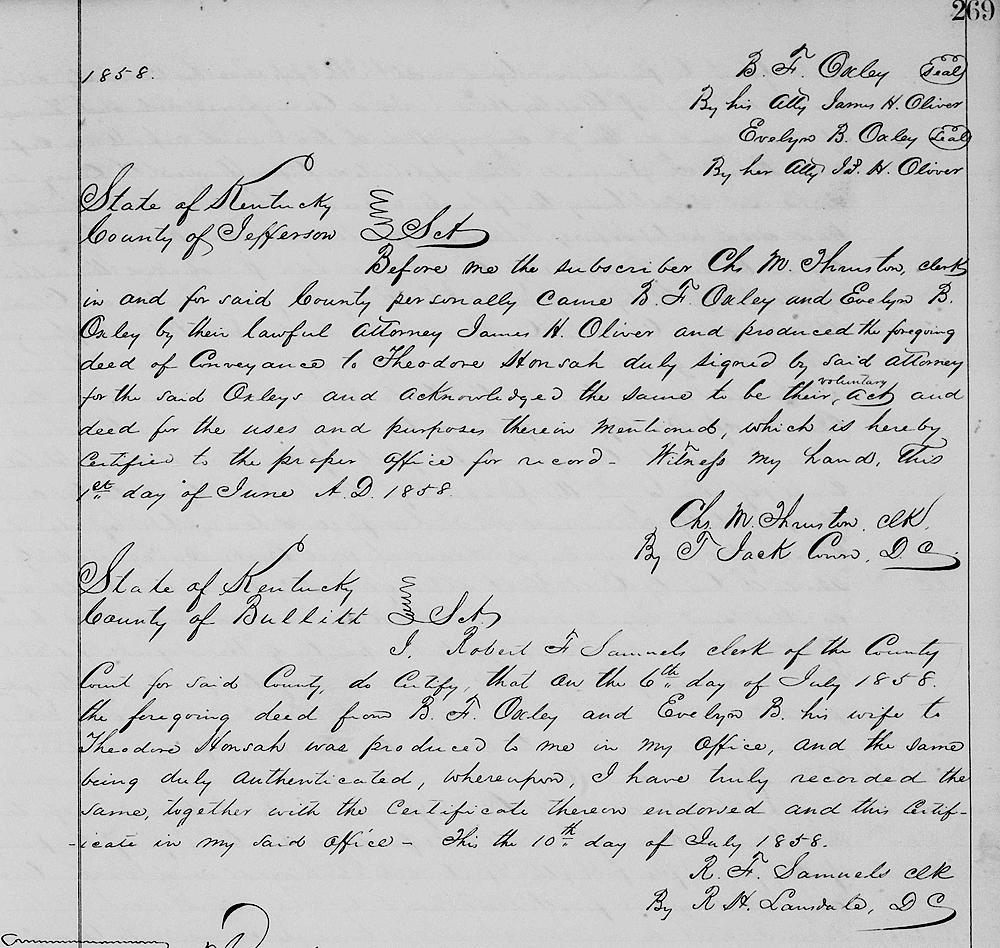 269
1858.
B. F. Oxley (Seal)
By his Atty James H. Oliver
Evelyn B. Oxley (Seal)
By her Atty Js. H. Oliver
State of Kentucky
County of Jefferson } Sct
Before me the subscriber Chs M. Thruston, clerk
in and for said County personally came B. F. Oxley and Evelyn B.
Oxley by their lawful attorney James H. Oliver and produced the foregoing
deed of Conveyance to Theodore Honsah duly signed by said attorney
for the said Oxleys and acknowledged the same to be their voluntary act and
deed for the uses and purposes therein mentioned, which is hereby
certified to the proper office for record - Witness my hand, this
1st day of June A. D. 1858.
Chs. M. Thruston, clk,
By T Jack Conn, D C.
State of Kentucky
County of Bullitt } Sct.
I, Robert F. Samuels clerk of the County
Court for said County, do certify, that on the 6th day of July 1858.
the foregoing deed from B. F. Oxley and Evelyn B. his wife to
Theodore Honsah was produced to me in my office, and the same
being duly authenticated, whereupon, I have truly recorded the
same, together with the certificate thereon endorsed and this certif-
-icate in my said office - This the 10th day of July 1858.
R. F. Samuels clk
By R H. Lansdale, D C